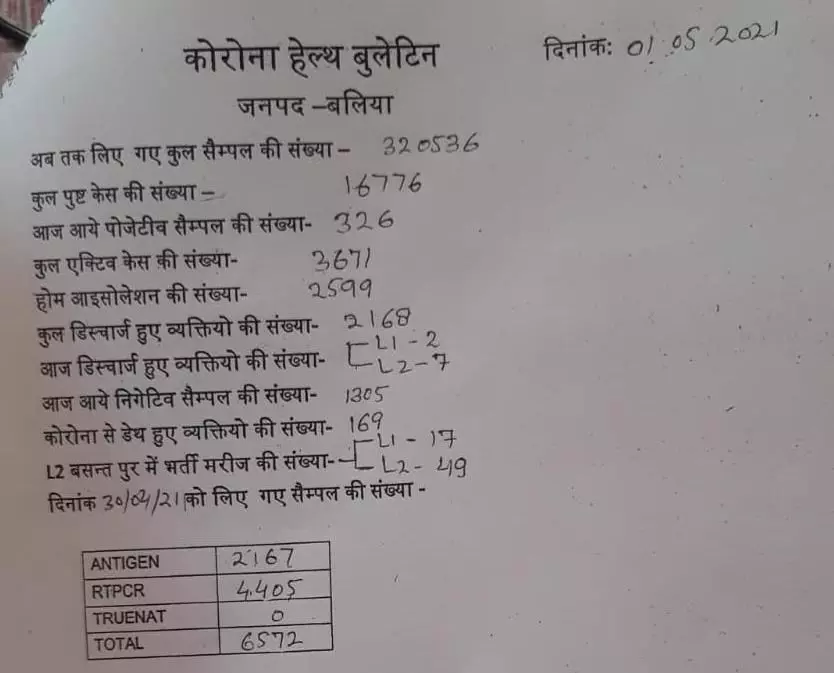 कोरोना हेल्थ बुलेटिन दिनांक: 01.05.2021
जनपद –बलिया
अब तक लिए गए कुल सैम्पल की संख्या – 320536
कुल पुष्ट केस की संख्या – 16776
आज आये पोजेटीव सैम्पल की संख्या- 326
कुल एक्टिव केस की संख्या- 3671
होम आइसोलेशन की संख्या- 2599
कुल डिस्चार्ज हुए व्यक्तियो की संख्या- 2168
आज डिस्चार्ज हुए व्यक्तियो की संख्या- L1 - 2
L2 - 7
आज आये निगेटिव सैम्पल की संख्या- 1305
कोरोना से डेथ हुए व्यक्तियो की संख्या- 169
L2 बसन्त पुर में भर्ती मरीज की संख्या- L1 - 17
L2 - 49
दिनांक 30/04/21 को लिए गए सैम्पल की संख्या -
ANTIGEN 2167
RTPCR 4405
TRUENAT 0
TOTAL 6572